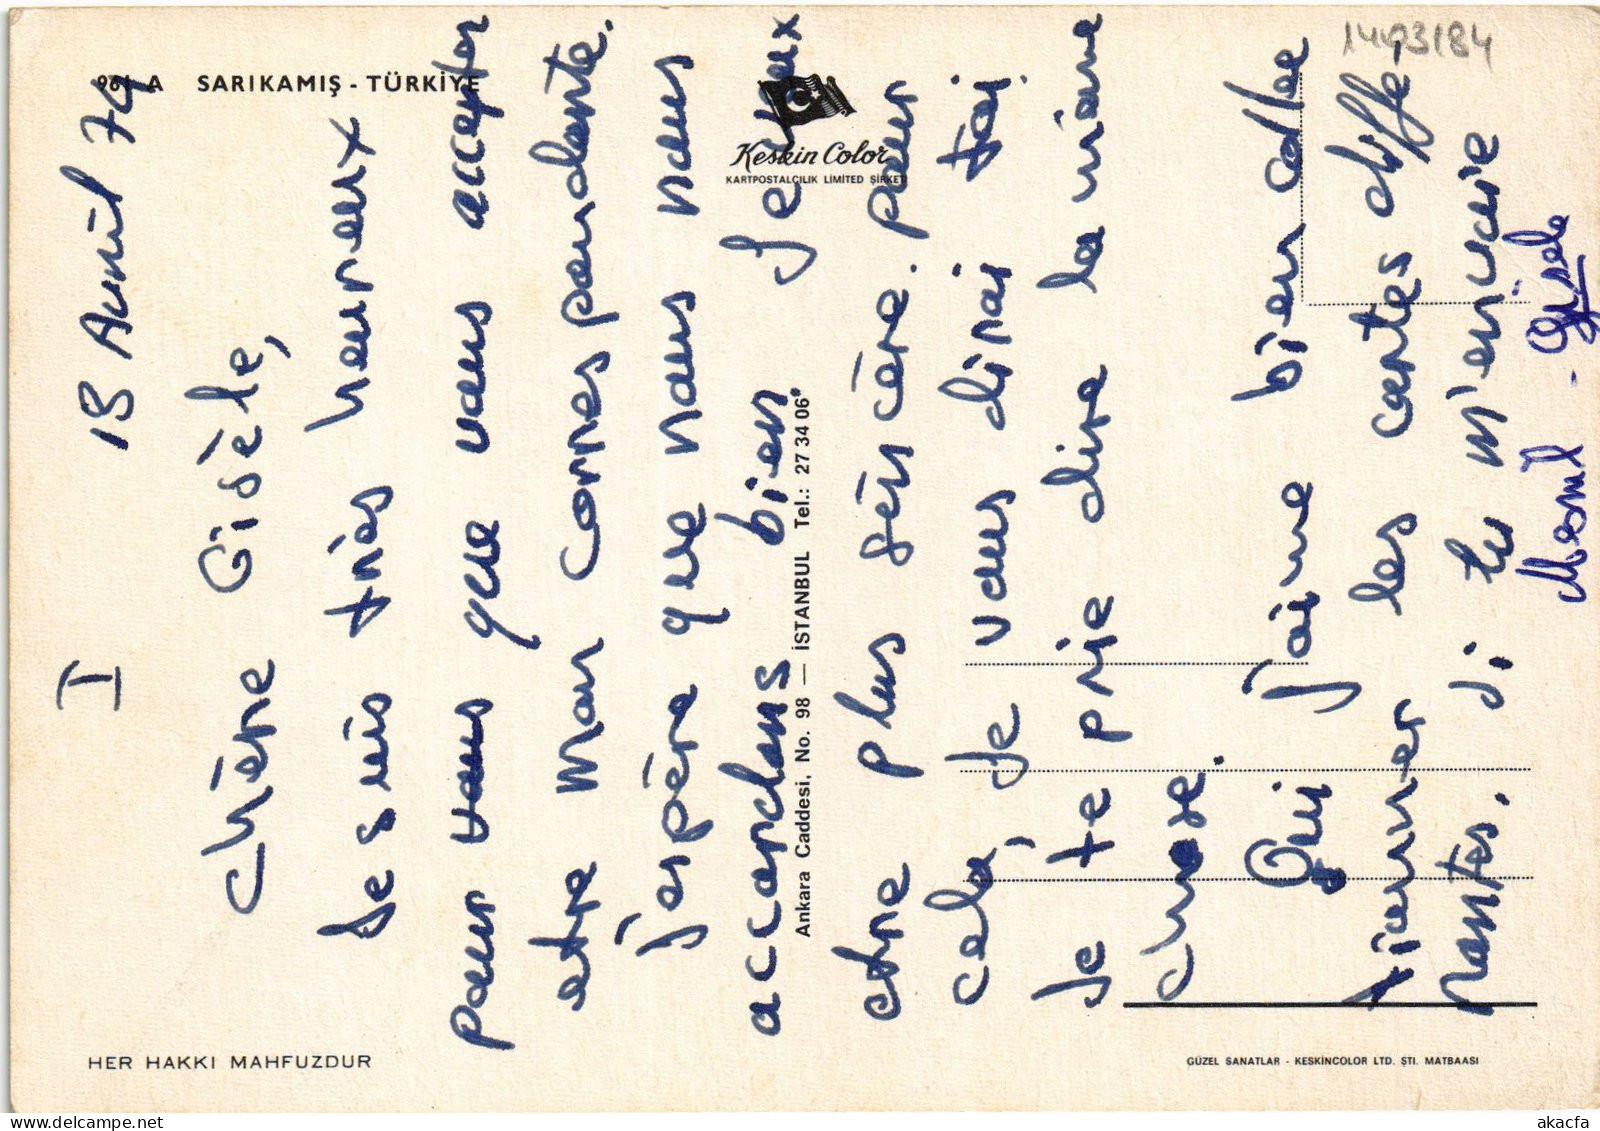 961 A SARIKAMIŞ - TÜRKİYE
Keskin Color
KARTPOSTALCILIK LIMITED ŞİRKETİ
Ankara Caddesi. No. 98 — İSTANBUL Tel.: 27 34 06
HER HAKKI MAHFUZDUR
GÜZEL SANATLAR - KESKİNCOLOR LTD. ŞTİ. MATBAASI
14493184
I 13 Avril 74
Chère Gisèle,
Je suis très heureux
pour vous que vous accepter
etre mon correspondante.
j'espère que nous nous
accordons bien Je veux
etre plus sencère. pour
cela, Je vous dirai toi.
Je te prie dire la même
chose.
Oui j'aime bien collec
tionner les cartes diffe-
rantes. Si tu m'envoie
Mesnil - Gisele